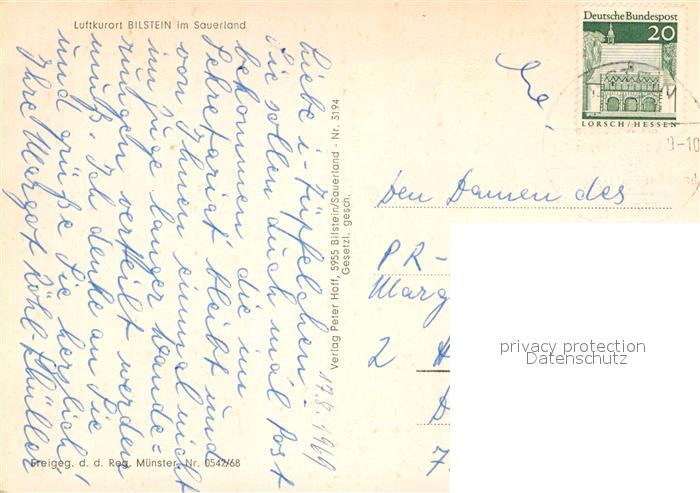 Luftkurort BILSTEIN im Sauerland
Deutsche Bundespost
20
LORSCH/HESSEN
9-10
17.8.1969
Liebe i-Tüpfelchen -
Sie sollen auch mal Post
bekommen, die im
Sekretariat bleibt und
von Ihnen einmal nicht
im Zuge langer Wande=
rungen verteilt werden
muß. Ich denke an Sie
und grüße Sie herzlich!
Ihre Margot
Verlag Peter Hoff, 5955 Bilstein/Sauerland - Nr. 3194
Gesetzl. gesch.
Den Damen des
PR-
Marg
2 H
D
7.
privacy protection
Datenschutz
Freigeg. d. d. Reg. Münster, Nr. 0542/68